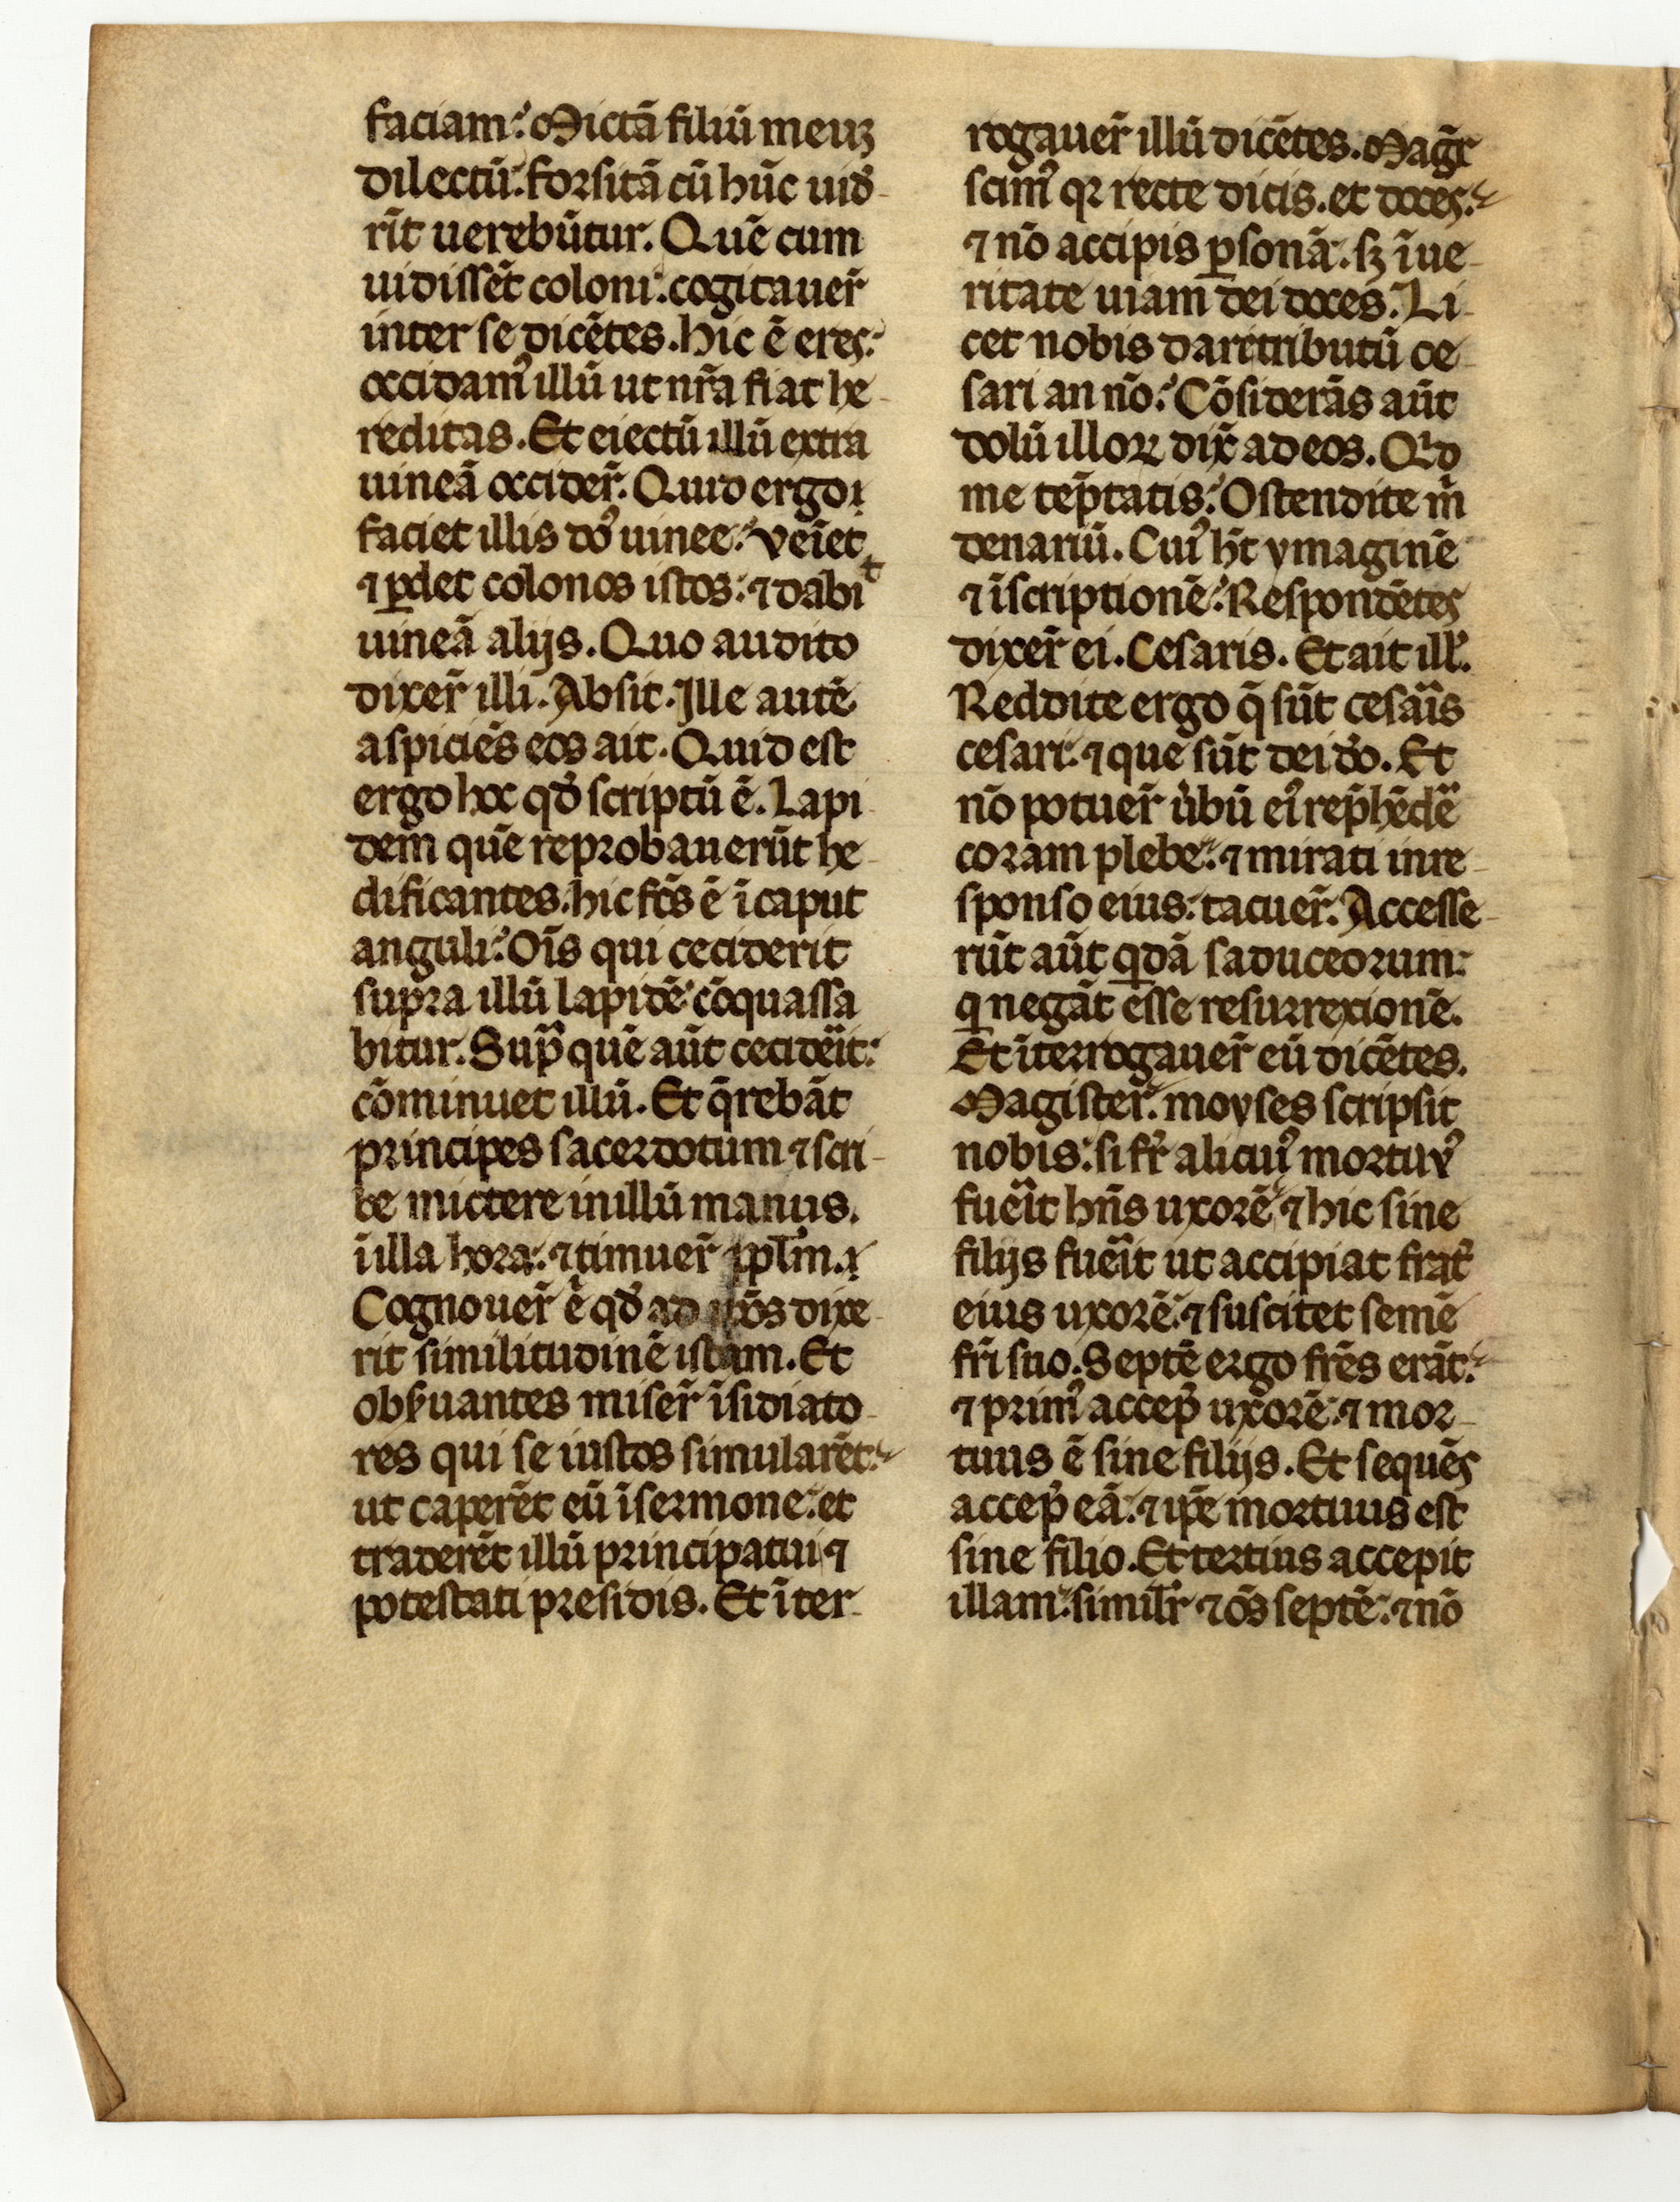 faciam:́ Mictā filiū meuʒ
dilectū: forsitā cū hūc uid̾
rīt uerebūtur. Quē cum
uidissēt coloni: cogitauer̄
inter se dicētes. hic ē eres:
occidam᾿ illū ut nr̄a fiat he
reditas. Et eiectū illū extra
uineā occider̄. Quid ergo
faciet illis do᾿ uinee:́ Veīet
⁊ ꝑdet colonos istos: ⁊ dabit
uineā alijs. Quo audito
dixer̄ illi. Absit. Ille autē
aspiciēs eos ait. Quid est
ergo hoc qd̾ scriptū ē. Lapi
dem quē reprobauerūt he
dificantes. hic fc̄s ē ī caput
anguli:́ Oīs qui ceciderit
supra illū lapidē cōquassa
bitur. Supͣ quē aūt cecideͥit:
cōminuet illū. Et q̄rebāt
principes sacerdotum ⁊ scri
be mictere in illū manus.
ī illa hora: ⁊ timuer̄ ppl̄m.
Cognouer̄ .n. qd̾ ad ip̄os dixe
rit similitudinē istam. Et
obẜuantes miser̄ īsidiato
res qui se iustos simularēt:
ut caperēt eū ī sermone: et
traderēt illū principatui ⁊
potestati presidis. Et īter
rogauer̄ illū dicētes. Magr̄
scim᾿ qꝛ recte dicis. et doces:
⁊ nō accipis ꝑsonā: sꝫ ī ue
ritate uiam dei doces. Li
cet nobis dari tributū ce
sari an nō:́ Cōsiderās aūt
dolū illoꝝ dix̄ ad eos. Qͥd
me tēptatis:́ Ostendite m̄
denariū. Cui᾿ hꝫt ymaginē
⁊ īscriptionē:́ Respondētes
dixer̄ ei. Cesaris. Et ait ill᾿.
Reddite ergo q̄ sūt cesaͥis
cesari: ⁊ que sūt dei do̾. Et
nō potuer̄ u̾bū ei᾿ rep̄hēde̾
coram plebe: ⁊ mirati in re
sponso eius: tacuer̄. Accesse
rūt aūt qͥdā saduceorum:
qͥ negāt esse resurrexionē.
Et īterrogauer̄ eū dicētes.
Magister. moyses scripsit
nobis: si fr̄ alicui᾿ mortuu᾿
fueͥit hn̄s uxorē ⁊ hic sine
filijs fueͥit ut accipiat frat̾
eius uxorē: ⁊ suscitet semē
fr̄i suo. Septē ergo fr̄es erāt:
⁊ prim᾿ accep̾ uxorē: ⁊ mor
tuus ē sine filijs. Et sequēs
accep̾ eā: ⁊ ip̄e mortuus est
sine filio. Et tertius accepit
illam: simil̾r ⁊ oēs septē: ⁊ nō